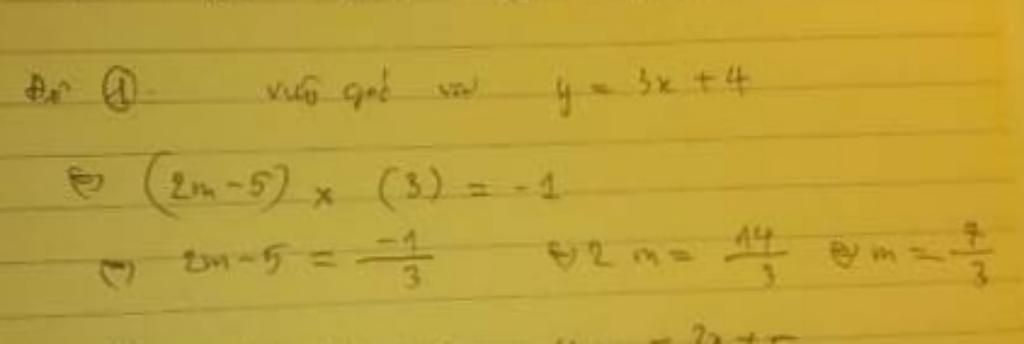 Để ① vuông góc với y = 3x + 4
⇔ (2m - 5) x (3) = -1
⇔ 2m - 5 = -1/3 ⇔ 2m = 14/3 ⇔ m = 7/3